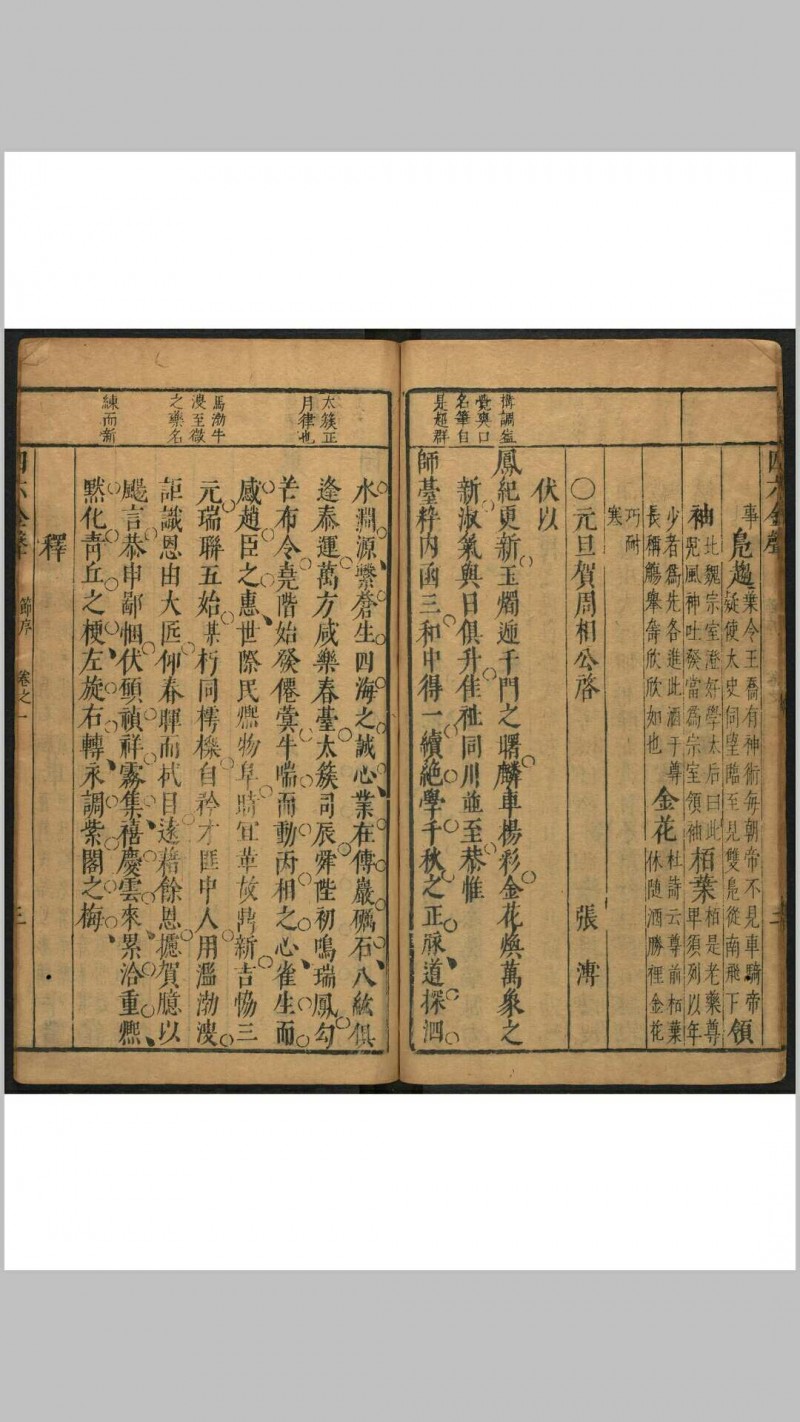 四六全聲
事 鳧趨 葉令王喬有神術每朝帝不見車騎帝疑使太史伺望臨至見雙鳧從南飛下 領
袖 北魏宗室澄好學太后曰此兒風神吐發當為宗室領袖 栢葉 栢是老藥尊畢須列以年
少者爲先各進此酒于尊長稱觴舉壽欣欣如也 金花 杜詩云尊前栢葉休隨酒勝裡金花
巧耐寒
〇元旦賀周相公啓 張溥
伏以
鳳紀更新玉燭迎千門之曙麟車楊彩金花煥萬象之
新淑氣與日俱升佳祉同川並至恭惟
師臺粹內函三和中得一續絶學千秋之正脉道探泗
搆調
名筆自
是超群
水淵源繫蒼生四海之誠心業在傅巖礪石八紘俱
逢泰運萬方咸樂春臺太簇司辰舜陛初鳴瑞鳳勾
芒布令堯階始發僊蓂牛喘而動丙相之心雀生而
感趙臣之惠世際民熈物阜時宜革故鼎新吉協三
元瑞聯五始某朽同樗櫟自矜才匪中人用濫渤溲
詎識恩由大匠仰春暉而拭目遂藉餘恩攄賀臆以
颺言恭申鄙悃伏願禎祥霧集禧慶雲來累洽重熈
黙化靑丘之梗左旋右轉永調紫閣之梅
太簇正
月律也
馬渤牛
溲至微
之藥名
練而新
釋
四六全聲 節序 卷之一 三